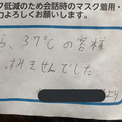 ク低減のため会話時のマスク着用・
力よろしくお願いします。
ら、37℃の客様
みませんでした。
より